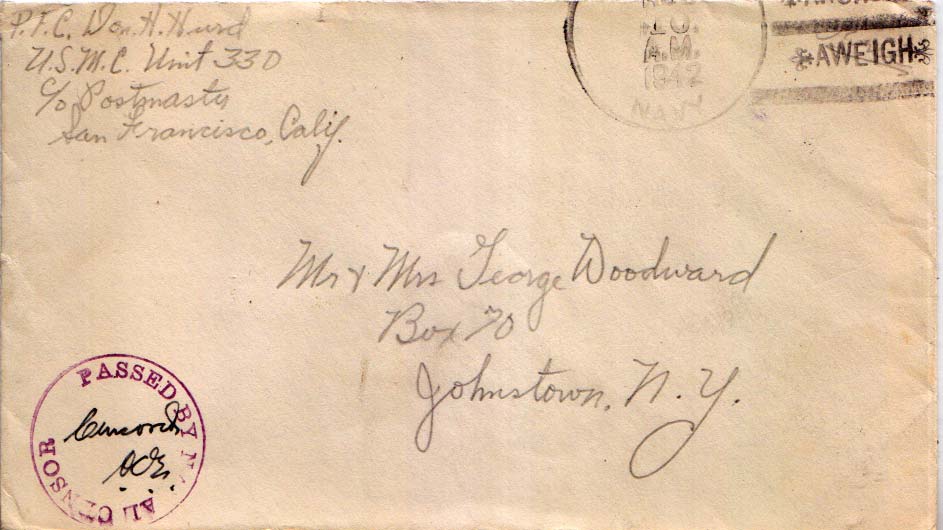 P.F.C. Don. H. Hurd
U.S.M.C. Unit 330
c/o Postmaster
San Francisco, Calif.
10
A.M.
1942
NAVY
AWEIGH
Mr & Mrs George Woodward
Box 70
Johnstown, N.Y.
PASSED BY NAVAL CENSOR